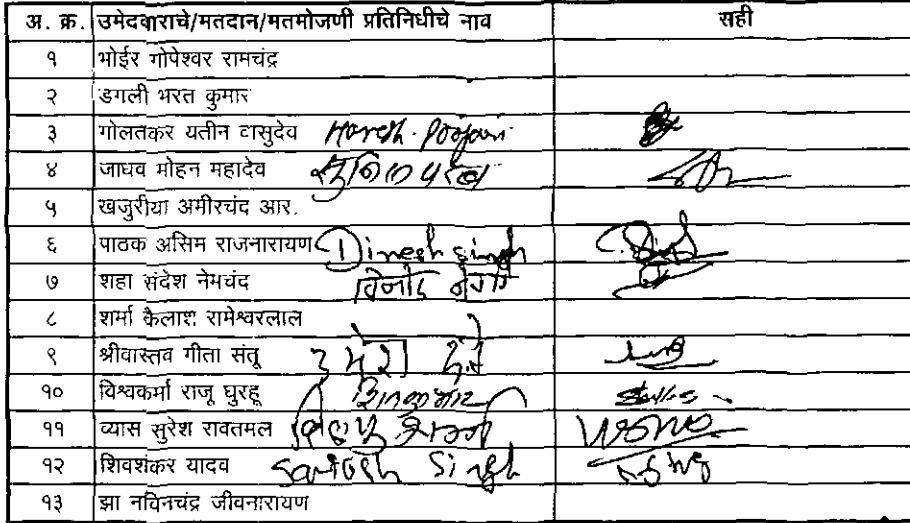 अ. क्र. उमेदवाराचे/मतदान/मतमोजणी प्रतिनिधीचे नाव सही
१ भोईर गोपेश्वर रामचंद्र
२ डगली भरत कुमार
३ गोलतकर यतीन वासुदेव Haresh
४ जाधव मोहन महादेव सुनिल परब
५ खजुरीया अमीरचंद आर.
६ पाठक असिम राजनारायण Dinesh singh
७ शहा संदेश नेमचंद विनोद
८ शर्मा कैलाश रामेश्वरलाल
९ श्रीवास्तव गीता संतू उमेश दुबे
१० विश्वकर्मा राजू घुरहू शिवकुमार
११ व्यास सुरेश रावतमल
१२ शिवशंकर यादव Santosh Singh
१३ झा नविनचंद्र जीवनारायण